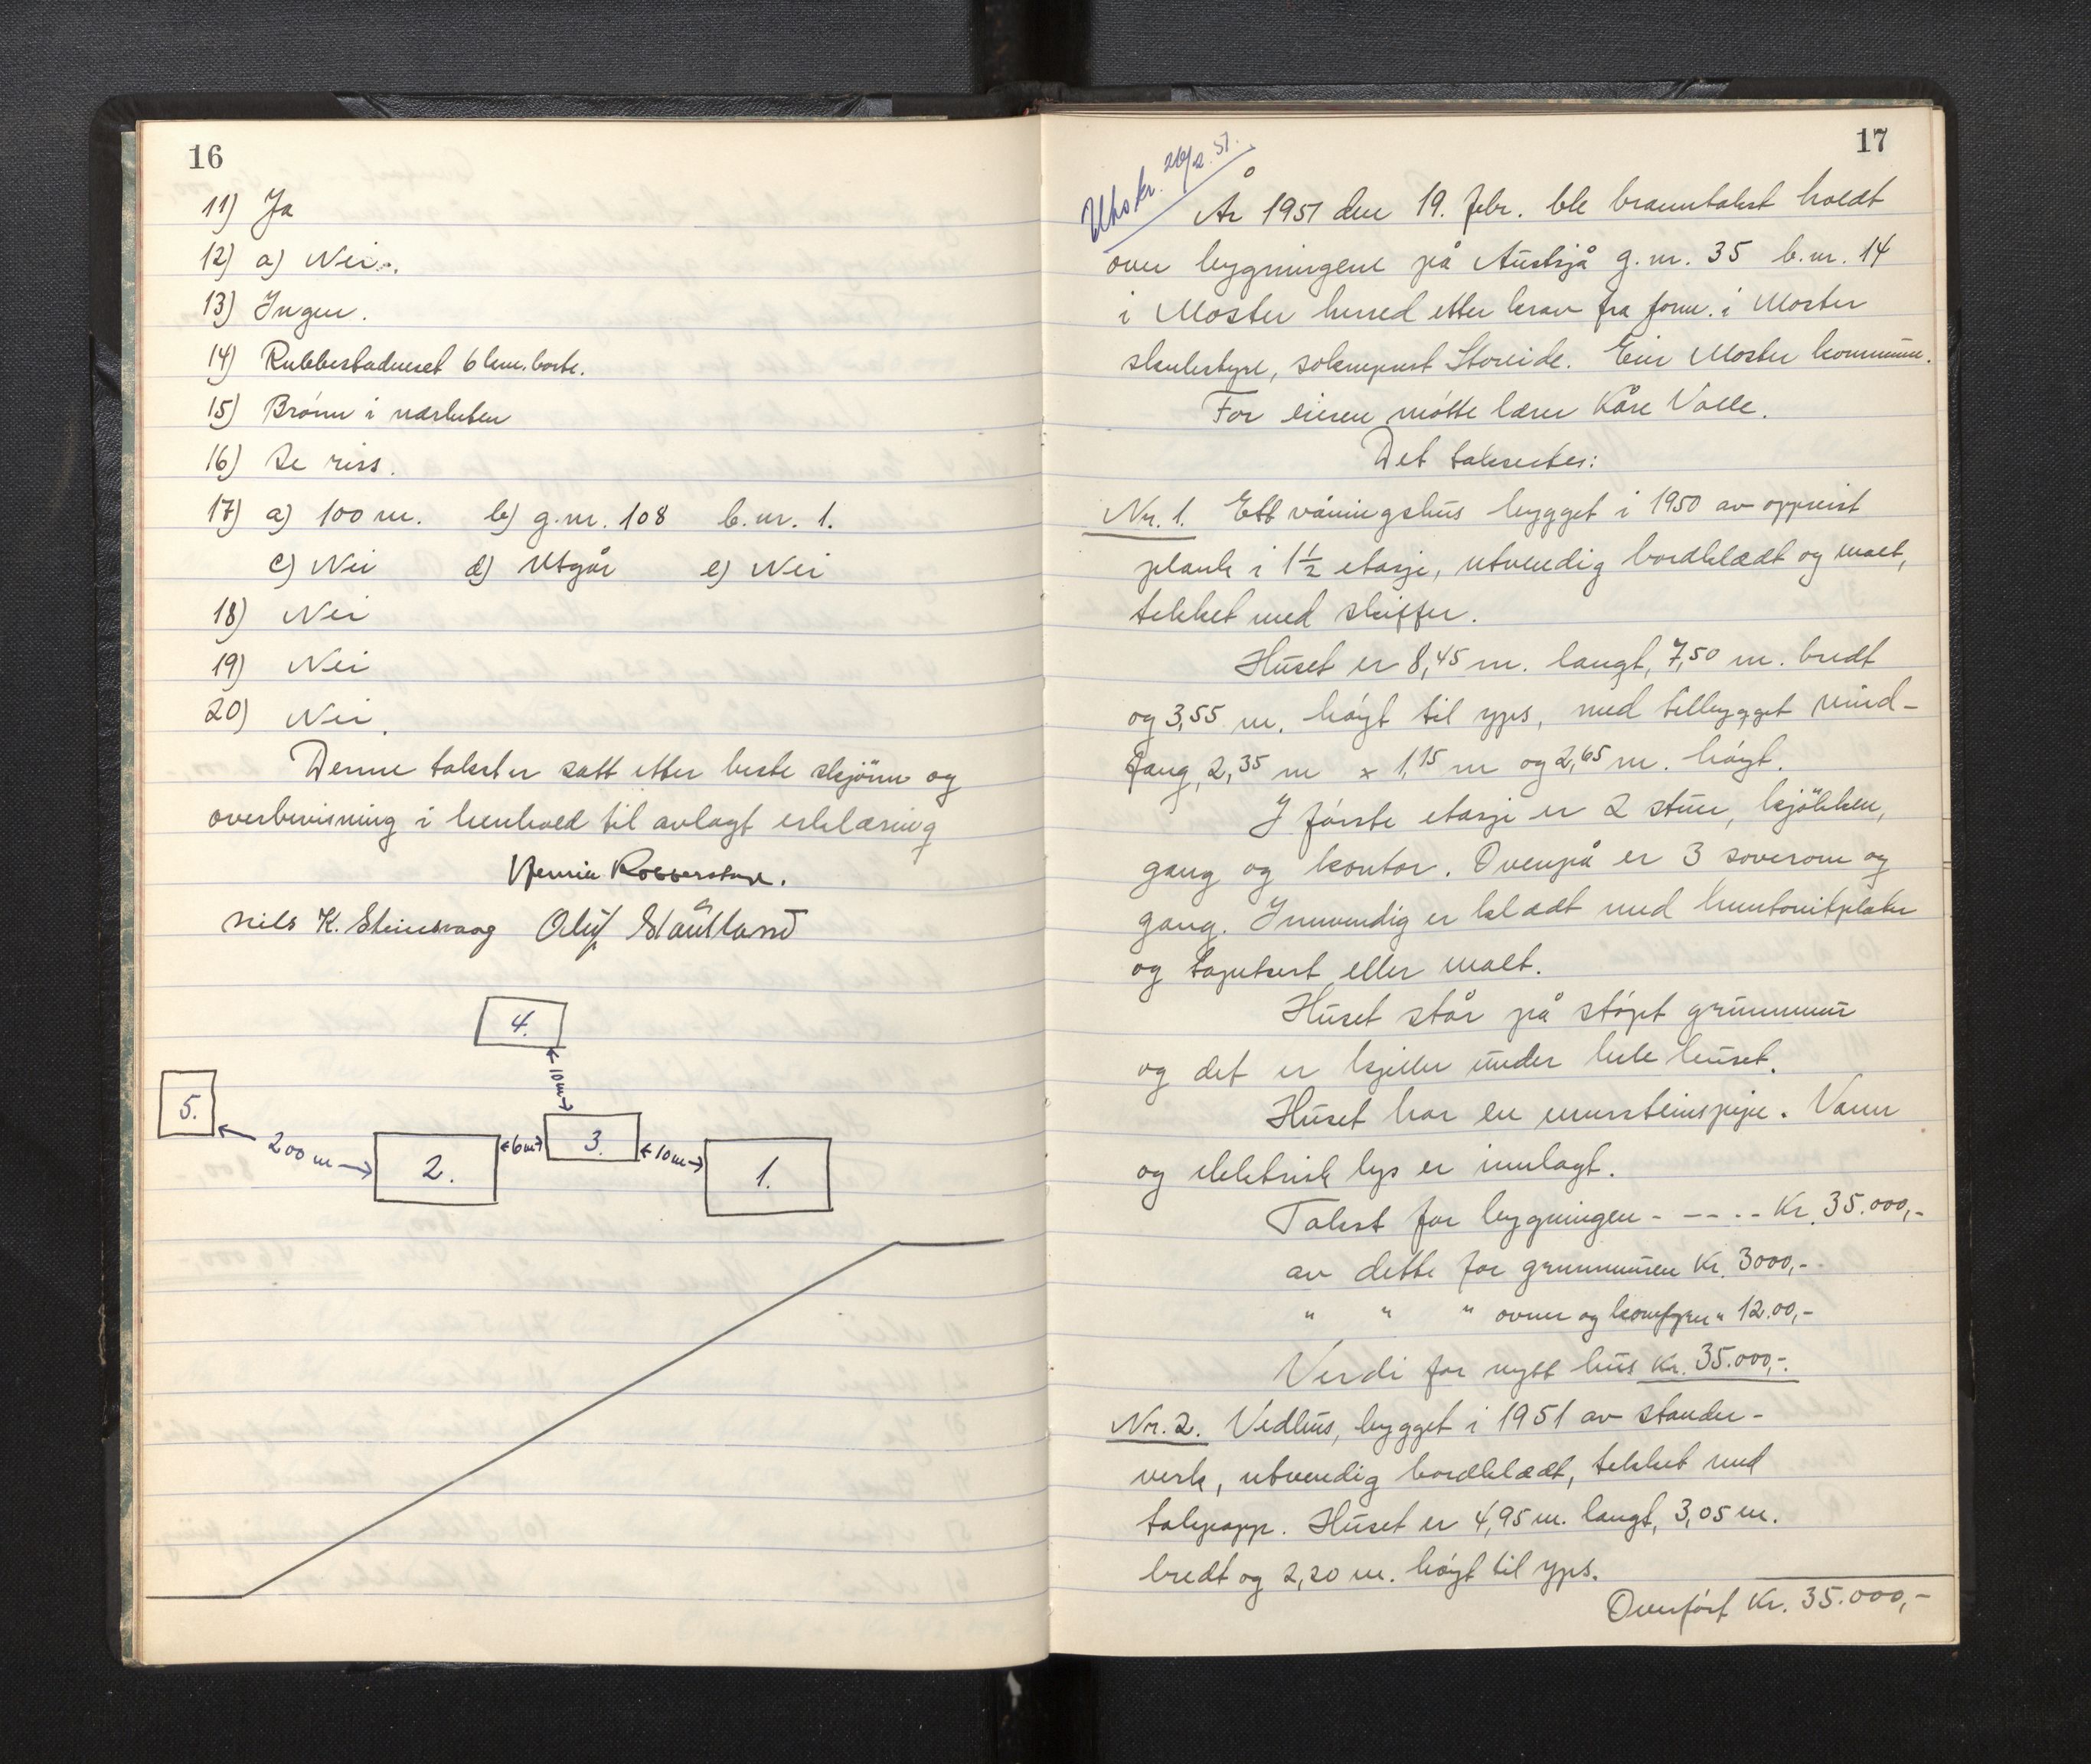 16
11) Ja
12) a) Nei.
13) Ingen.
14) Rubbestadneset 6 km. borte.
15) Brønn i nærheten
16) Se riss.
17) a) 100 m. b) g.nr. 108 b.nr. 1.
c) Nei d) Utgår e) Nei
18) Nei
19) Nei
20) Nei.
Denne takst er satt etter beste skjønn og
overbevisning i henhold til avlagt erklæring
Nils K. Steinsvaag Oluf
4.
10m
5.
200 m
2.
6m
3.
10m
1.
17
Utskr. 26/2.51.
År 1951 den 19. febr. ble branntakst holdt
over bygningene på Austsjå g.nr. 35 b.nr. 14
i Moster herred etter krav fra form. i Moster
skulestyre, sokneprest Storeide. Eier Moster kommune.
For eieren møtte lærer Kåre Valle.
Det takseertes:
Nr. 1. Ett våningshus bygget i 1950 av oppreist
plank i 1½ etasje, utvendig bordklædt og malt,
tekket med skiffer.
Huset er 8,45 m. langt, 7,50 m. bredt
og 3,55 m. høgt til yps, med tilbygget vind-
fang, 2,35 m x 1,15 m og 2,65 m. høgt.
I første etasje er 2 stuer, kjøkken,
gang og kontor. Ovenpå er 3 soverom og
gang. Innvendig er klædt med huntonitplater
og tapetsert eller malt.
Huset står på støpt grunnmur
og det er kjeller under hele huset.
Huset har en mursteinspipe. Vann
og elektrisk lys er innlagt.
Takst for bygningen - - - - - Kr. 35.000,-
av dette for grunnmuren Kr. 3000,-
" " " ovner og komfyrer " 12.00,-
Verdi for nytt hus Kr. 35.000,-.
Nr. 2. Vedhus, bygget i 1951 av stander-
verk, utvendig bordklædt, tekket med
takpapp. Huset er 4,95 m. langt, 3,05 m.
bredt og 2,20 m. høgt til yps.
Overført Kr. 35.000,-